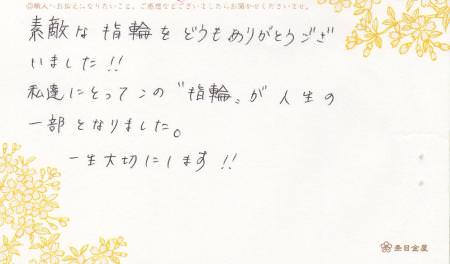 ◎職人へお伝えになりたいこと、ご感想などございましたらお聞かせくださいませ。
素敵な指輪をどうもありがとうござ
いました!!
私達にとってこの〝指輪〟が人生の
一部となりました。
一生大切にします!!
杢目金屋